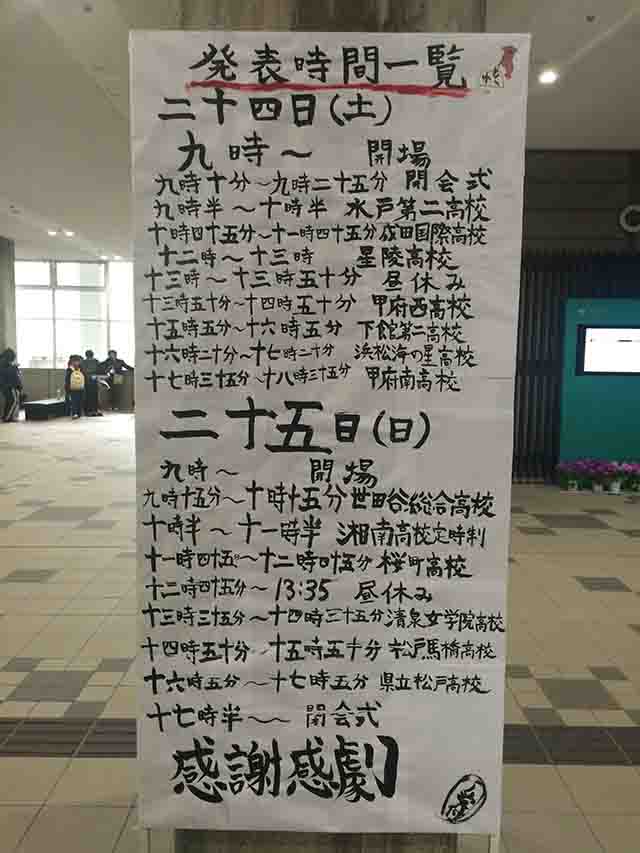 発表時間一覧
二十四日(土)
九時～ 開場
九時十分～九時二十五分 開会式
九時半～十時半 水戸第二高校
十時四十五分～十一時四十五分 成田国際高校
十二時～十三時 星陵高校
十三時～十三時五十分 昼休み
十三時五十分～十四時五十分 甲府西高校
十五時五分～十六時五分 下館第二高校
十六時二十分～十七時二十分 浜松海の星高校
十七時三十五分～十八時三十五分 甲府南高校
二十五日(日)
九時～ 開場
九時十五分～十時十五分 世田谷総合高校
十時半～十一時半 湘南高校定時制
十一時四十五～十二時四十五分 桜町高校
十二時四十五分～13:35 昼休み
十三時三十五分～十四時三十五分 清泉女学院高校
十四時五十分～十五時五十分 松戸馬橋高校
十六時五分～十七時五分 県立松戸高校
十七時半～ 閉会式
感謝感劇